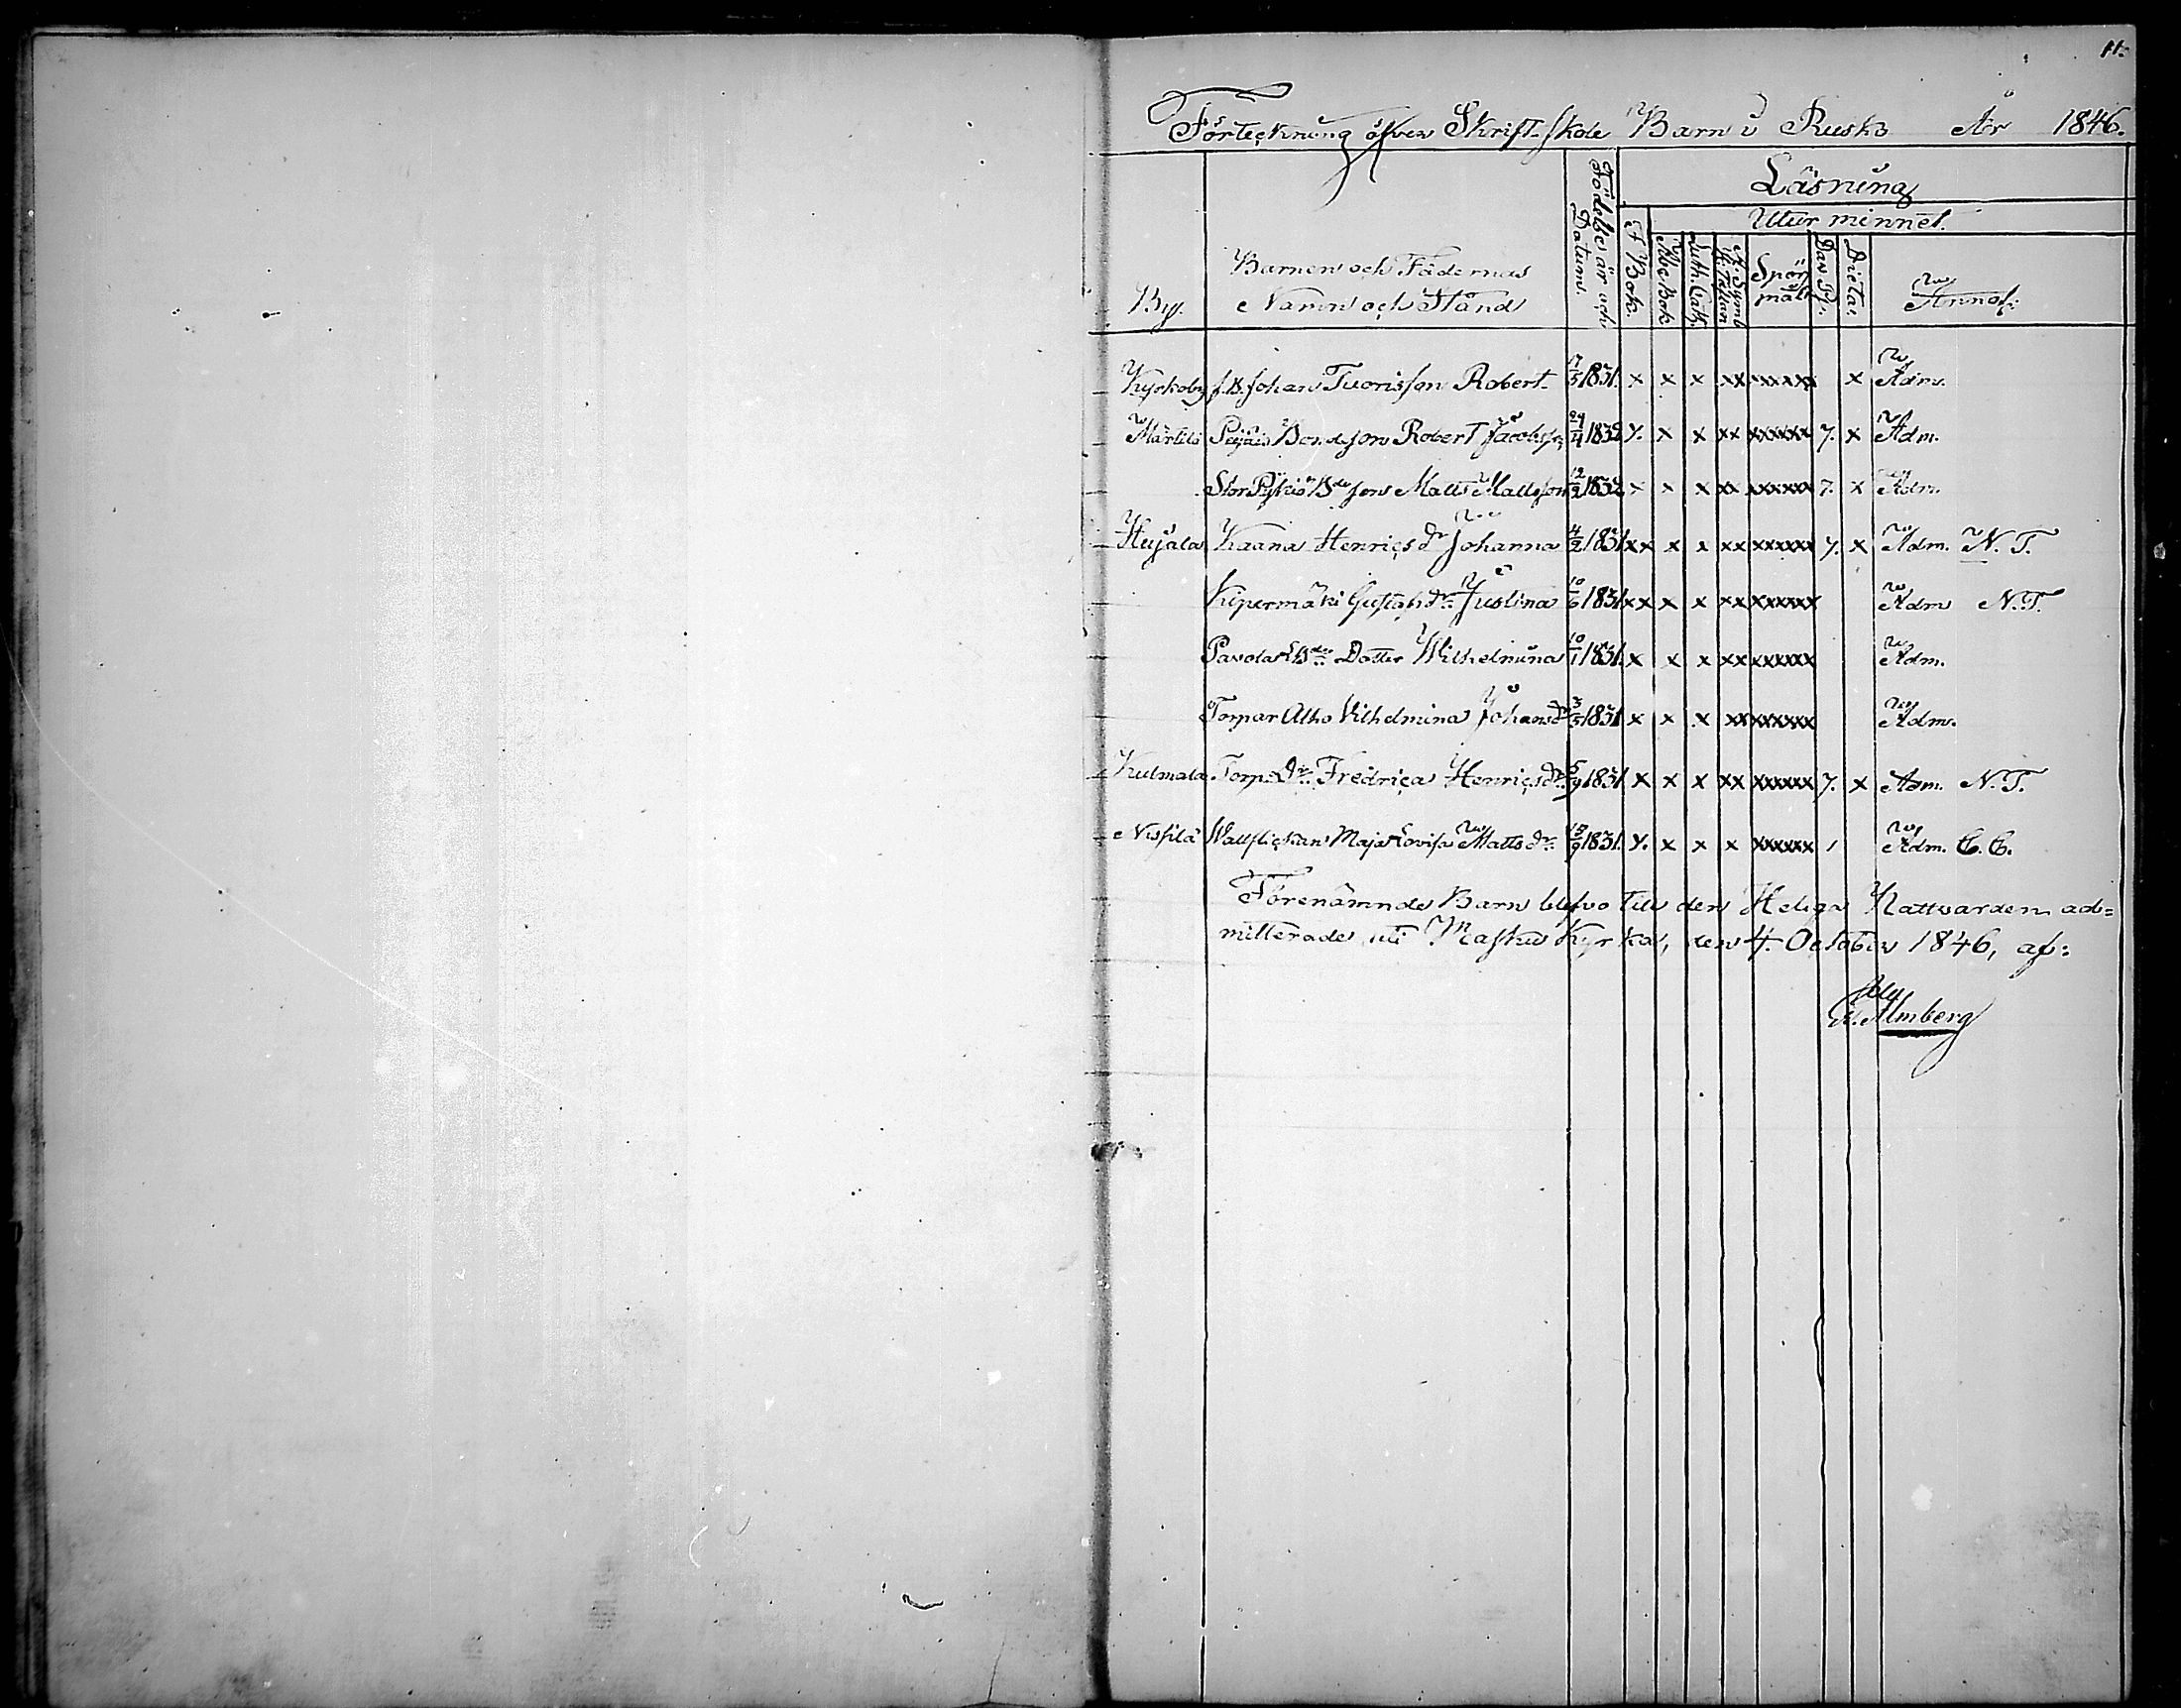 11.
Förteckning öfver Skrift-skole Barn i Rusko År 1846.
By.
Barnens och Fädernas
Namn och Stånd
Födelse år och
Datum.
Läsning
Utur minnet.
I Bok.
Abc Bok
Luth. Cath.
A. Symb.
H. Taflan
Spörs
mål
Dav. Ps.
Dicta.
Annot:
Kyrkoby f.B. Johan Tuorisson Robert 17/5 1831. x x x xx xxxxxx x Adm.
Märtilä Bondeson Robert Jacobss. 24/4 1832 y. x x xx xxxxxx 7. x Adm.
Stor Pykiö Bde son Matts Mattsson 12/2 1832 x x x xx xxxxxx 7. x Adm.
Hujala Kaana Henrics dr Johanna 4/2 1831 xx x x xx xxxxxx 7. x Adm. N.T.
Kupermäki Gustafs dr. Justina 10/6 1831 xx x x xx xxxxxx Adm N.T.
Pavola Bde Dotter Wilhelmina 10/1 1831. x x x xx xxxxxx Adm.
Torpar Alho Vilhelmina Johans dr 3/5 1831 x x x xx xxxxxx Adm.
Kulmala Torp. Dr. Fredrica Henricsdr. 5/9 1831 x x x xx xxxxxx 7. x Adm. N.T.
Nihilä Wallflickan Maja Lovisa Matts dr. 15/9 1831. y. x x x xxxxxx / Adm. C.C.
Förenämnde Barn blefvo till den Heliga Nattvarden ad=
mitterade, uti Masku Kyrka, den 4. October 1846, af:
Almberg